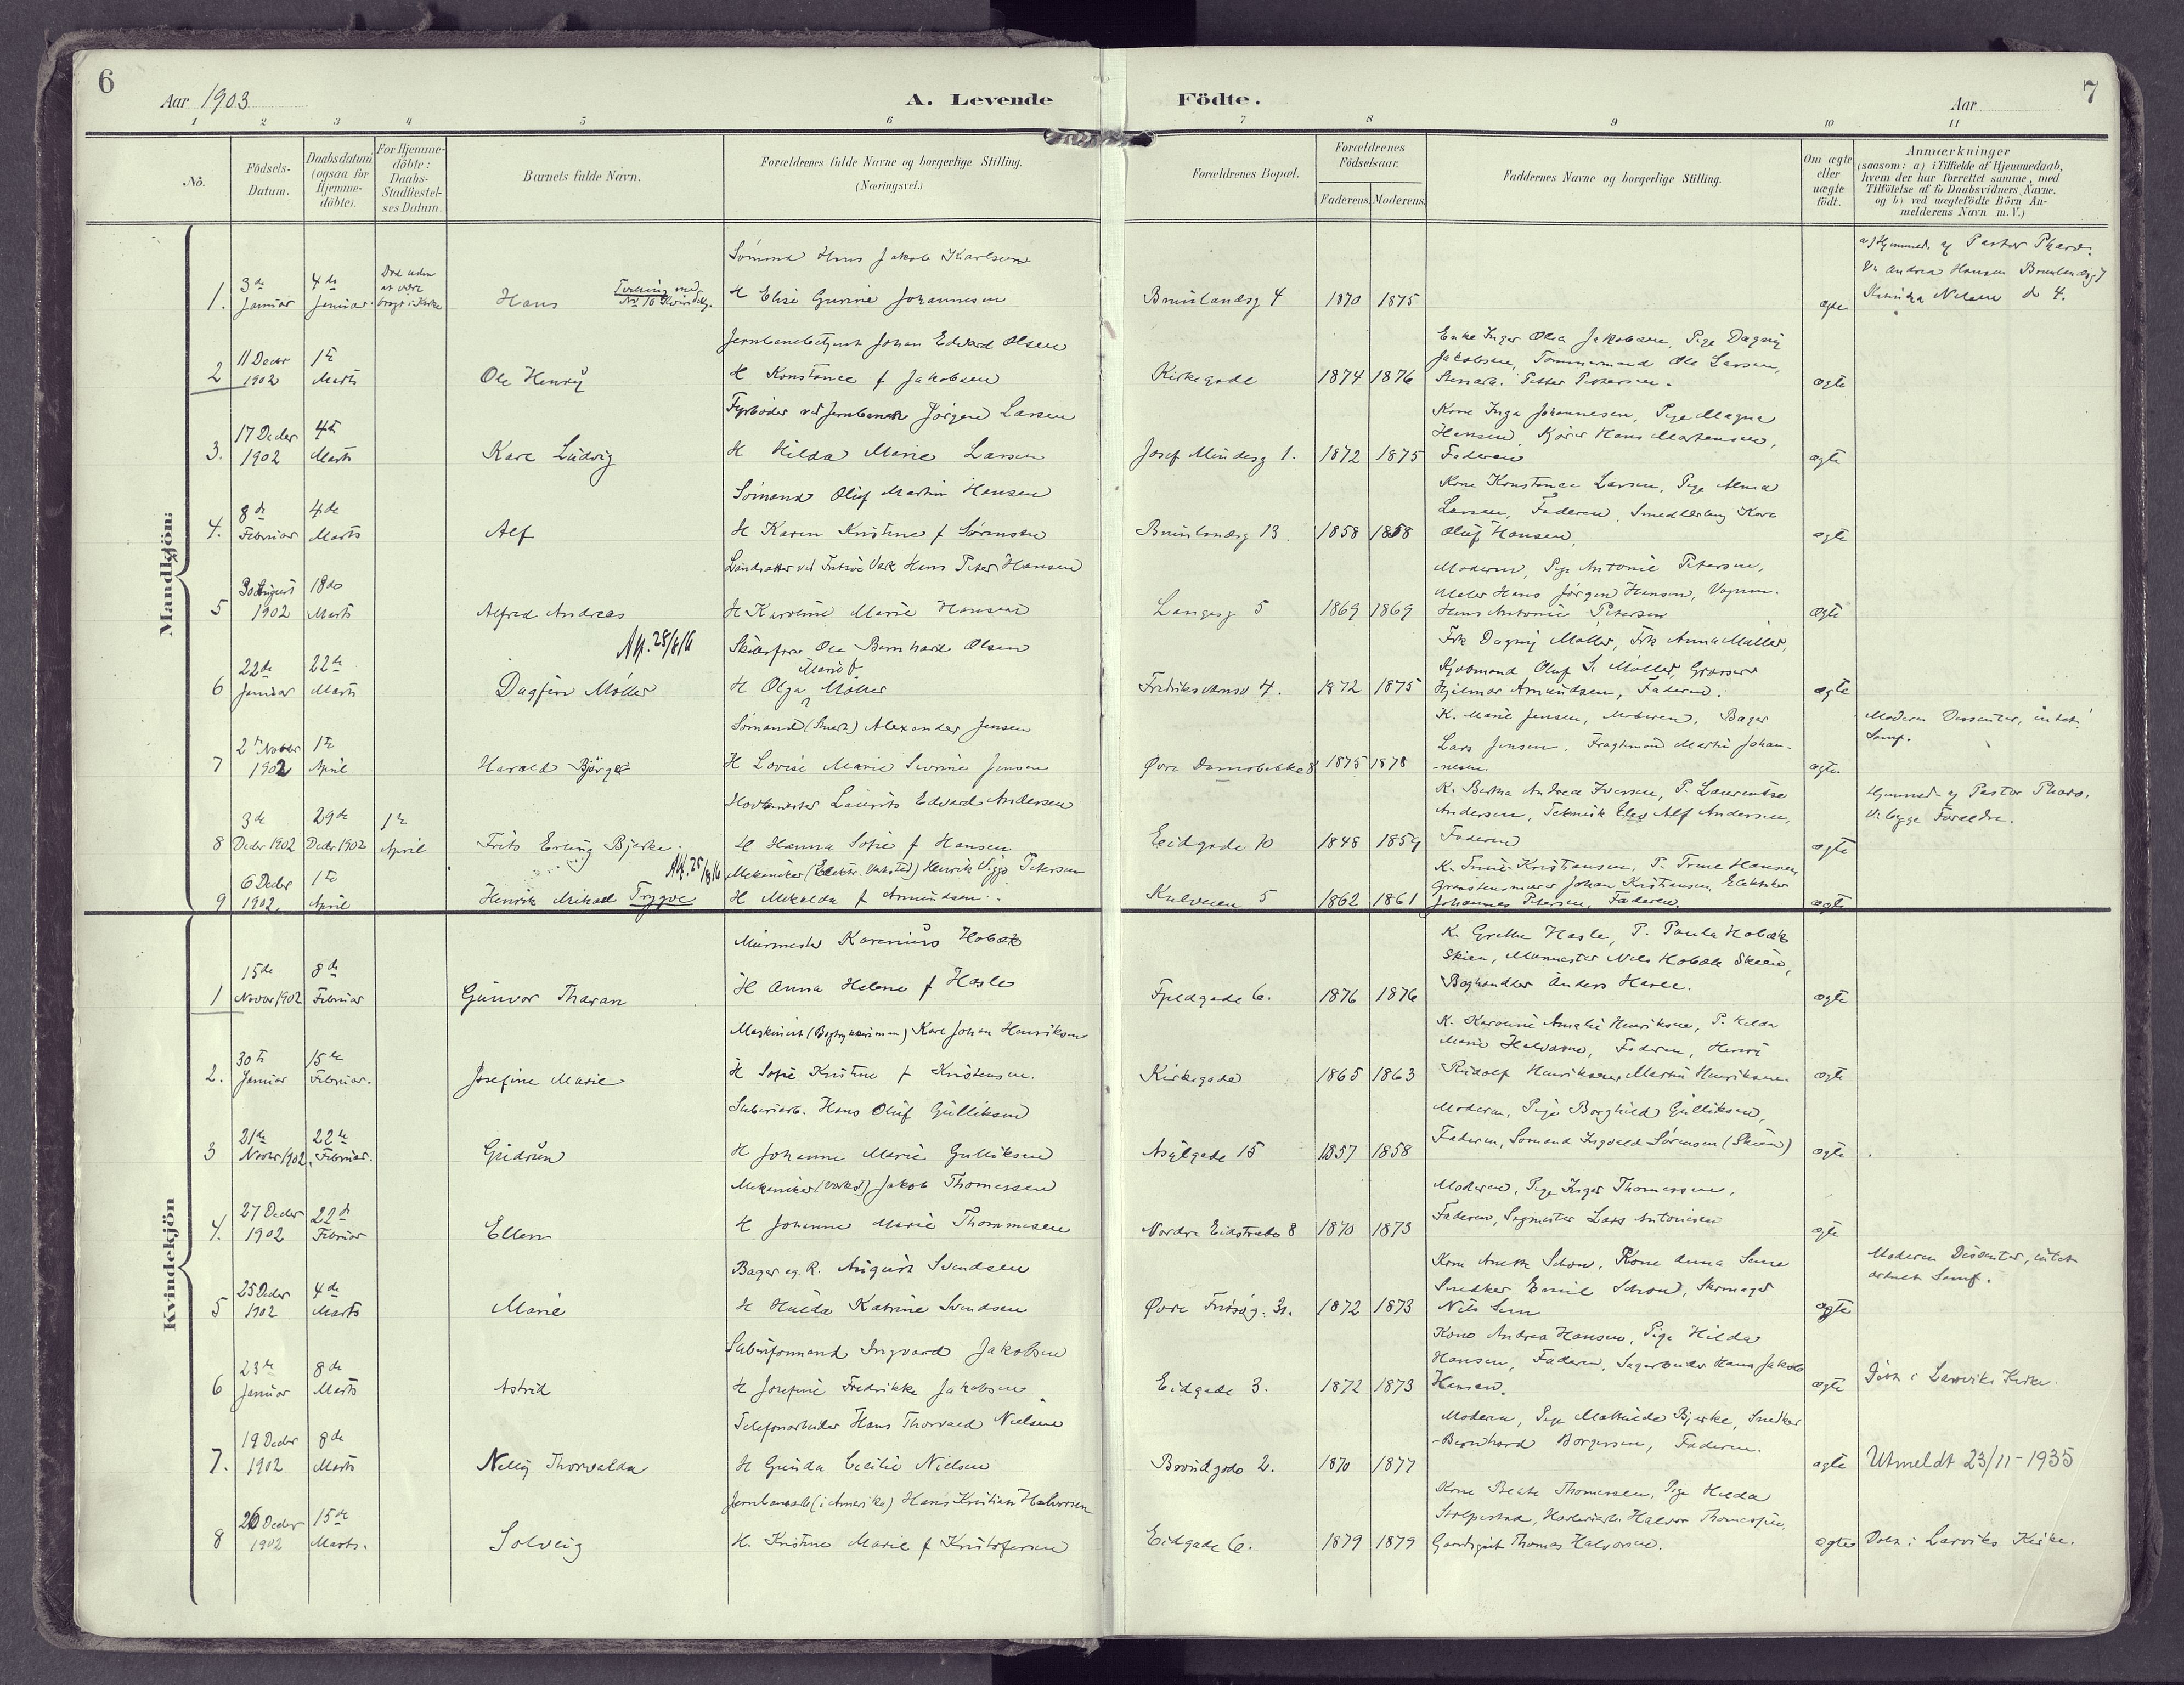 6
Aar 1903
A. Levende
Födte.
Aar
7
1 2 3 4 5 6 7 8 9 10 11
No.
Födsels-
Datum.
Daabsdatum
(ogsaa for
Hjemme-
döbte).
For Hjemme-
döbte:
Daabs-
Stadfæstel-
ses Datum.
Barnets fulde Navn.
Forældrenes fulde Navne og borgerlige Stilling.
(Næringsvei.)
Forældrenes Bopæl.
Forældrenes
Födselsaar.
Faderens.
Moderens.
Faddernes Navne og borgerlige Stilling.
Om ægte
eller
uægte
födt.
Anmærkninger
(saasom: a) i Tilfælde af Hjemmedaab,
hvem der har forrettet samme, med
Tilföielse af to Daabsvidners Navne.
og b) ved uægtefödte Börn An-
melderens Navn m. V.)
Mandkjön:
1.
3de
Januar
4de
Januar
Død uden
at være
bragt i Kirke
Hans
Tvilling med
No 10 Kvindekj.
Sømand Hans Jakob Karlsen
H Elise Gurine Johannesen
Brunlandsg 4
1870
1875
ægte
a) Hjemmed. af Pastor Pharo.
V. Andrea Hansen Brunlandsg 7
Nilsen do 4.
2
11 Decbr
1902
1te
Marts
Ole Henry
Jernbanebetjent Johan Edvard Olsen
H Konstance f Jakobsen
Kirkegade
1874
1876
Enke Inger Olea Jakobsen, Pige Dagny
Jakobsen, Tømmermand Ole Larsen,
Petter Pettersen.
ægte
3.
17 Decbr
1902
4de
Marts
Kare Ludvig
Fyrbøder ved Jernbanen Jørgen Larsen
H Hilda Marie Larsen
Josef Mindesg 1.
1872
1875
Kone Inga Johannesen, Pige Magna
Hansen, Kjører Hans Martensen,
Faderen
ægte
4.
8de
Februar
4de
Marts
Alf
Sømand Oluf Martin Hansen
H Karen Kristine f Sørensen
Brunlandsg 13.
1858
1858
Kone Konstance Larsen, Pige Alma
Larsen, Faderen, Smedlærling Kare
Oluf Hansen.
ægte
5
30 August
1902
18de
Marts
Alfred Andreas
Hans Peter Hansen
H Karoline Marie Hansen
Langesg 5
1869
1869
Moderen, Pige Antonie Petersen,
Maler Hans Jørgen Hansen,
Hans Antonie Petersen
ægte
6
22de
Januar
22de
Marts
Dagfin Møller
Att. 28/8/16
Ole Bernhard Olsen
Marie f
H Olga Møller
Fredriksværnsv 4.
1872
1875
Frk Dagny Møller, Frk Anna Møller,
Kjøbmand Oluf S. Møller, Grosser
Hjelmar Amundsen, Faderen.
ægte
7
2den Novbr
1902
1te
April
Harald Bjørge
Sømand Alexander Jensen
H Lovise Marie Severine Jensen
Øvre Damsbakke 8
1875
1878
K. Marie Jensen, Moderen, Bager
Lars Jensen. Fragtmand Martin Johan-
-nesen.
ægte.
Moderen Dissenter, intet
Samf.
8
3de
Decbr 1902
29de
Decbr 1902
1te
April
Frits Erling Bjerke.
Laurits Edvard Andersen
H Hanna Sofie f Hansen
Eidgade 10
1848
1859
K. Bertha Andrea Iversen, P. Laurentse
Andersen, Teknisk Elev Alf Andersen,
Faderen
ægte
Hjemmed. af Pastor Pharo.
V. begge Forældre.
9
6 Decbr
1902
1te
April
Henrik Mikael Trygve
Att. 25/8/16
Mekaniker (Elektr. Værksted) Henrik Viggo Petersen
H Mekalda f Amundsen.
Kulveien 5
1862
1861
K. Trine Kristiansen, P. Trine Hansen,
Johan Kristiansen, Elektriker
Johannes Petersen, Faderen.
ægte
Kvindekjön
1
15de
Novbr 1902
8de
Februar
Gunvor Tharan
Murmester Karenius Hobæk
H Anna Helene f Hasle
Fjeldgade 6.
1876
1876
K. Grethe Hasle, P. Paula Hobæk
Skien, Murmester Nils Hobæk Skien,
Boghandler Anders Hasle.
ægte
2.
30te
Januar
15de
Februar.
Josefine Marie
Maskinist (Bogtrykkerimm) Karl Johan Henriksen
H Sofie Kristine f Kristensen.
Kirkegade
1865
1863
K. Karoline Amalie Henriksen, P. Hilda
Marie Halvorsen, Faderen, Henri
Rudolf Henriksen, Martin Henriksen.
ægte
3
21de
Novbr 1902
22de
Februar.
Gudrun
Hans Oluf Gulliksen
H Johanne Marie Gulliksen
Asylgade 15
1857
1858
Moderen, Pige Borghild Gulliksen,
Faderen, Sømand Ingvald Sørensen (Skien)
ægte
4.
27 Decbr
1902
22de
Februar
Ellen
Mekaniker (Værkst) Jakob Thomessen
H Johanne Marie Thommesen
Nordre Eidstrædo 8
1870
1873
Moderen, Pige Inger Thomessen,
Faderen, Sagmester Lars Antonisen
ægte
5
25 Decbr
1902
4de
Marts
Marie
Bager eg. R. August Svendsen
H Hulda Katrine Svendsen
Øvre Fritzøg. 31.
1872
1873
Kone Anette Schou, Kone Anna Sem
Snedker Emil Schou, Skomager
Nils Sem
ægte
Moderen Dissenter, intet
ordnet Samf.
6
23de
Januar
8de
Marts
Astrid
Ingvard Jakobsen
H Josefine Fredrikke Jakobsen
Eidgade 3.
1872
1873
Kone Andrea Hansen, Pige Hilda
Hansen, Faderen, Sagarbeider Hans Jakob
Hansen.
ægte
Døbt i Larviks Kirke.
7.
19 Decbr
1902
8de
Marts
Nelly Thorvalda
Telefonarbeider Hans Thorvald Nielsen
H Gunda Cecilie Nielsen
2.
1870
1877
Moderen, Pige Mathilde Bjerke, Snedker
Bernhard Borgersen, Faderen.
ægte
Utmeldt 23/11-1935
8
26 Decbr
1902
15de
Marts.
Solveig
(i Amerika) Hans Kristian Halvorsen
H. Kristine Marie f Kristofersen
Eidgade 6.
1879
1879
Kone Beate Thomessen, Pige Hilda
Stolpestad, Halvor Thomessen,
Thomas Halvorsen.
ægte
Døbt i Larviks Kirke.